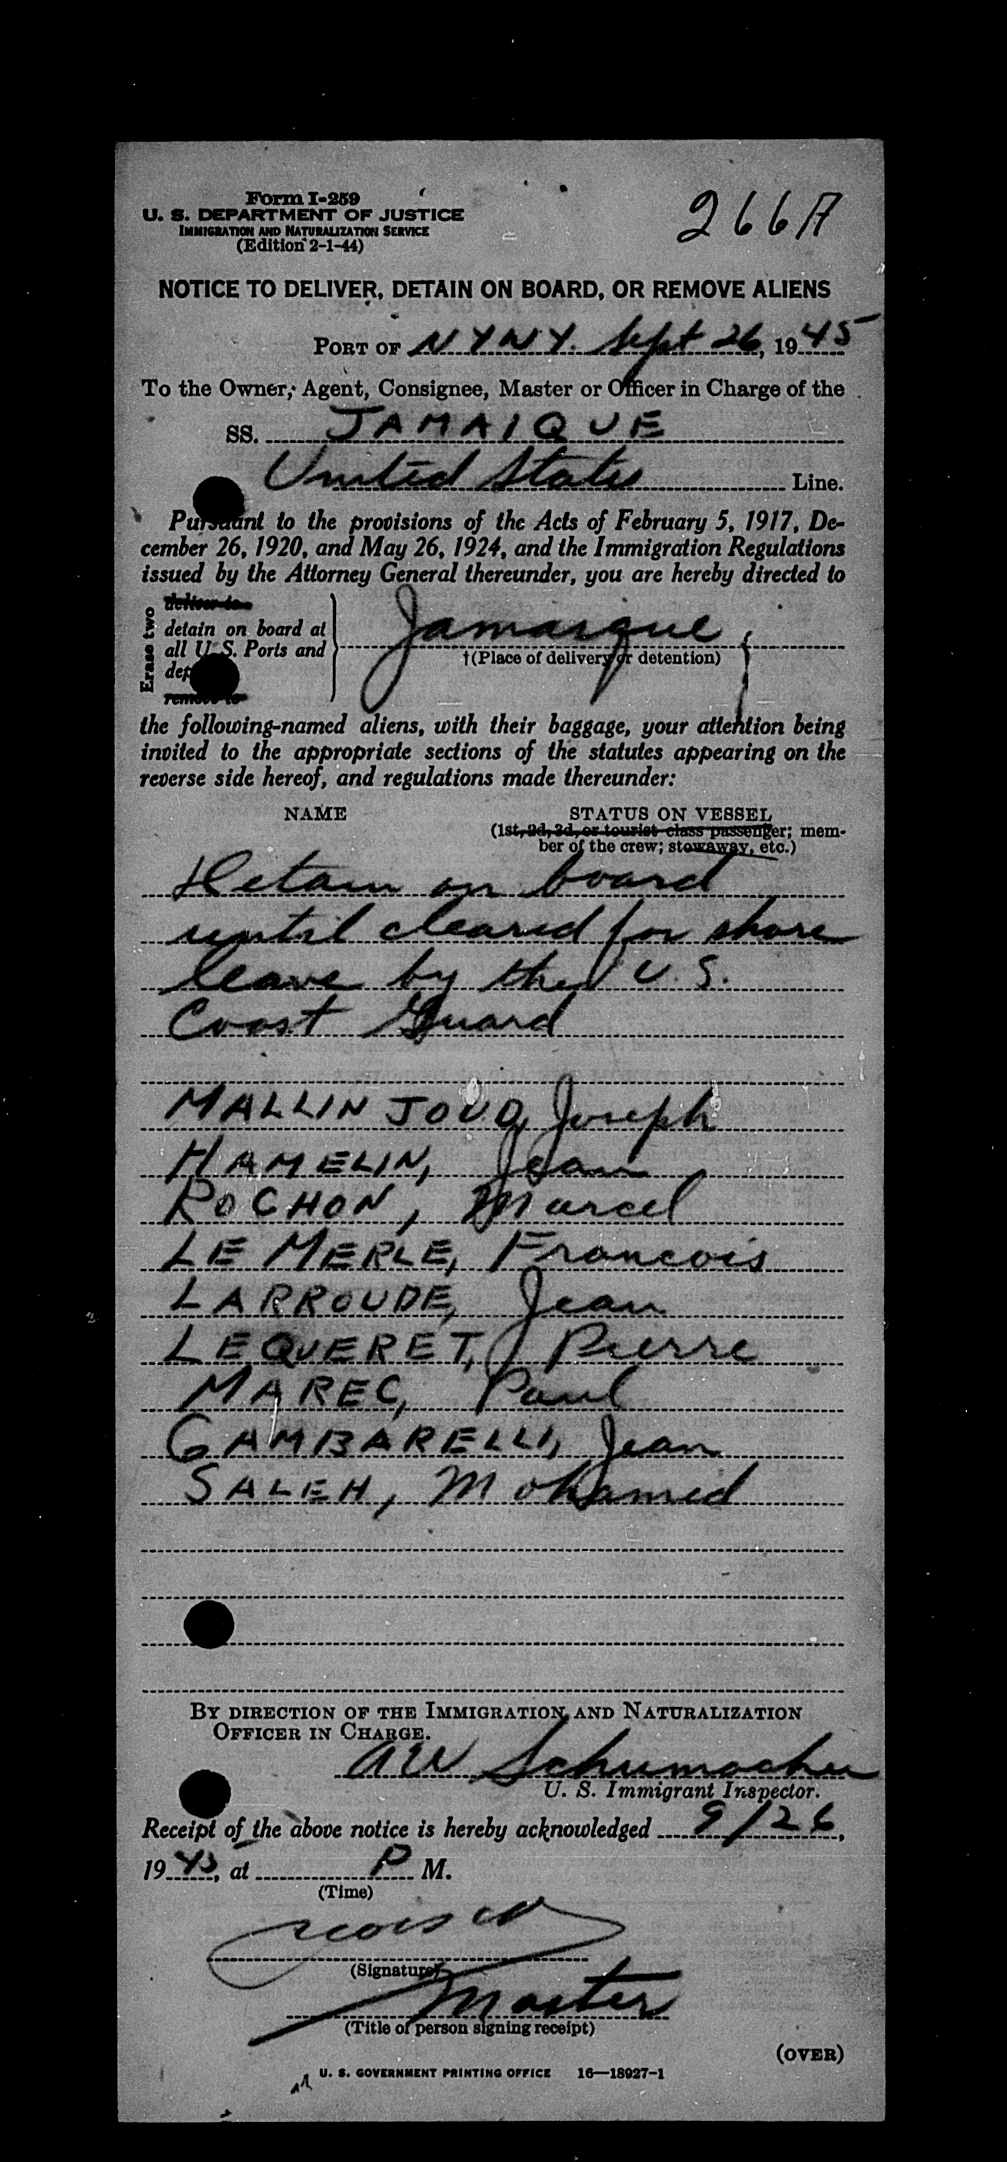 Form I-259
U. S. DEPARTMENT OF JUSTICE
IMMIGRATION AND NATURALIZATION SERVICE
(Edition 2-1-44)
266A
NOTICE TO DELIVER, DETAIN ON BOARD, OR REMOVE ALIENS
PORT OF NYNY. Sept 26, 1945
To the Owner, Agent, Consignee, Master or Officer in Charge of the
SS. JAMAIQUE
United States Line.
Pursuant to the provisions of the Acts of February 5, 1917, De-
cember 26, 1920, and May 26, 1924, and the Immigration Regulations
issued by the Attorney General thereunder, you are hereby directed to
Erase two
deliver to
detain on board at
all U. S. Ports and
remove to
Jamaique,
†(Place of delivery or detention)
the following-named aliens, with their baggage, your attention being
invited to the appropriate sections of the statutes appearing on the
reverse side hereof, and regulations made thereunder:
NAME STATUS ON VESSEL
(1st, 2d, 3d, or tourist class passenger; mem-
ber of the crew; stowaway, etc.)
Detain on board
until cleared for shore
leave by the U. S.
Coast Guard
MALLIN JOUD, Joseph
HAMELIN, Jean
ROCHON, Marcel
LE MERLE, Francois
LARROUDE, Jean
LEQUERET, Pierre
MAREC, Paul
GAMBARELLI, Jean
SALEH, Mohamed
BY DIRECTION OF THE IMMIGRATION AND NATURALIZATION
OFFICER IN CHARGE.
AW Schumacher
U. S. Immigrant Inspector.
Receipt of the above notice is hereby acknowledged 9/26,
1945, at P M.
(Time)
(Signature)
Master
(Title of person signing receipt)
(OVER)
U. S. GOVERNMENT PRINTING OFFICE 16—18927-1